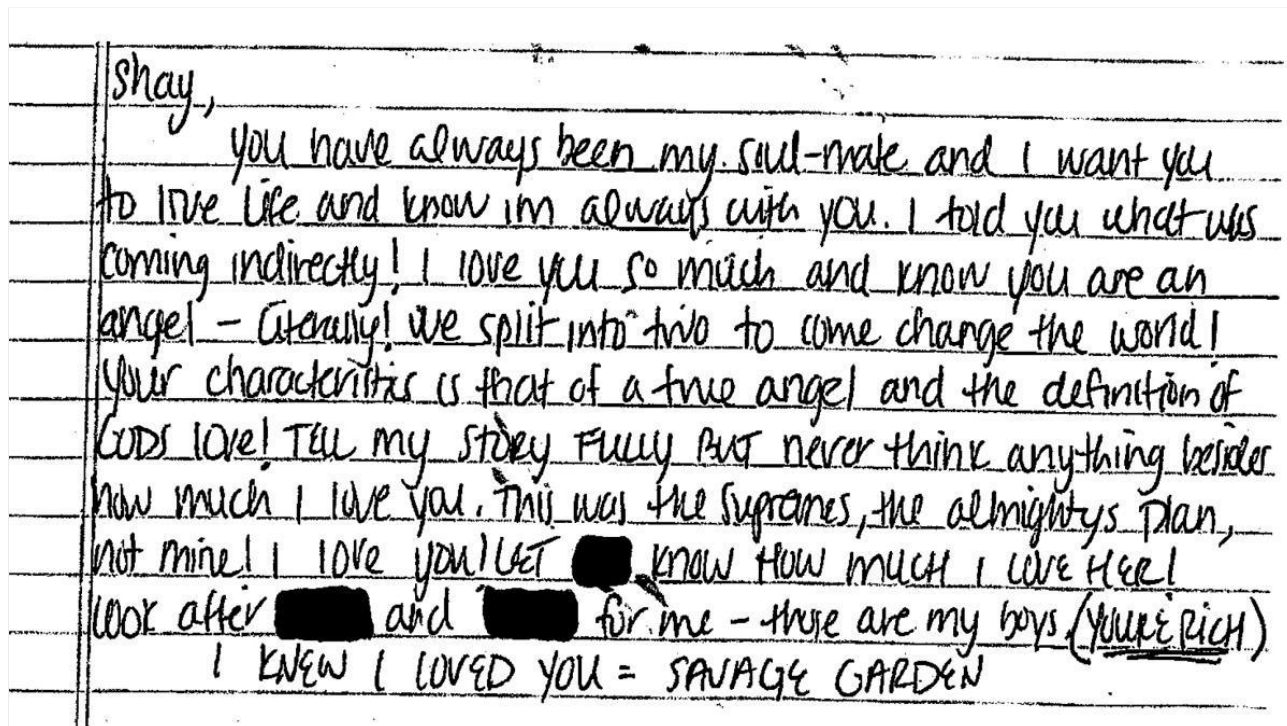 Shay,
You have always been my soul-mate and I want you
to live life and know im always with you. I told you what was
coming indirectly! I love you so much and know you are an
angel - literally! We split into two to come change the world!
Your characteristics is that of a true angel and the definition of
GODS love! TELL my STORY FULLY BUT never think anything besides
how much I love you. This was the supremes, the almightys plan,
not mine! I love you! LET KNOW HOW MUCH I LOVE HER!
look after and for me - those are my boys. (YOU'RE RICH)
I KNEW I LOVED YOU = SAVAGE GARDEN